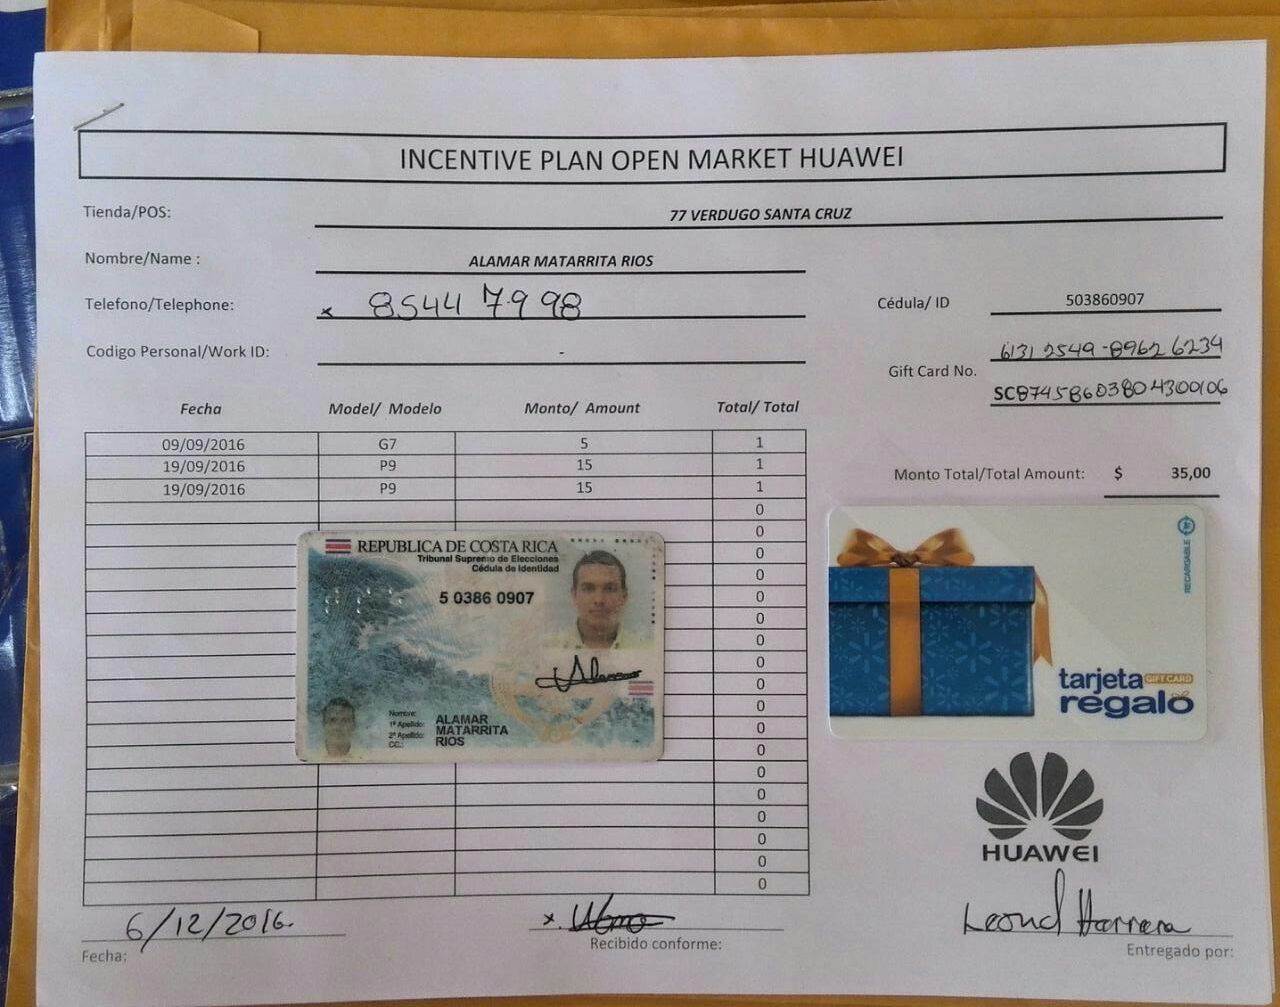 INCENTIVE PLAN OPEN MARKET HUAWEI
Tienda/POS: 77 VERDUGO SANTA CRUZ
Nombre/Name : ALAMAR MATARRITA RIOS
Telefono/Telephone: x 8544 7998 Cédula/ ID 503860907
Codigo Personal/Work ID: -
Gift Card No. 6131 2549-8962 6234
SC87458603804300106
Fecha Model/ Modelo Monto/ Amount Total/ Total
09/09/2016 G7 5 1
19/09/2016 P9 15 1
19/09/2016 P9 15 1
Monto Total/Total Amount: $ 35,00
0
0
0
0
0
0
0
0
0
0
0
0
0
0
0
0
0
0
REPUBLICA DE COSTA RICA
Tribunal Supremo de Elecciones
Cédula de Identidad
5 0386 0907
Alamar
Nombre: ALAMAR
1º Apellido: MATARRITA
2º Apellido: RIOS
CC.:
RECARGABLE
tarjeta GIFT CARD
regalo
HUAWEI
6/12/2016.
Fecha:
x.
Recibido conforme:
Leonel Herrera
Entregado por: